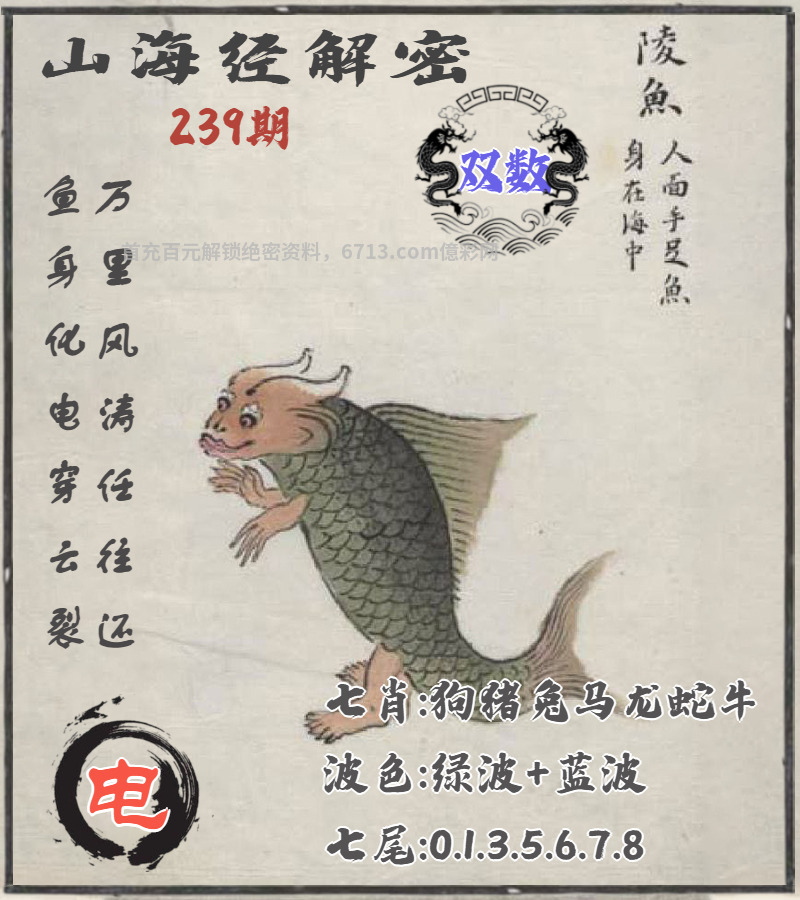 山海经解密
239期
陵魚
人面手足魚
身在海中
双数
万里风涛任往还
鱼身化电穿云裂
首充百元解锁绝密资料，6713.com億彩网
七肖:狗猪兔马龙蛇牛
波色:绿波+蓝波
七尾:0.1.3.5.6.7.8
电